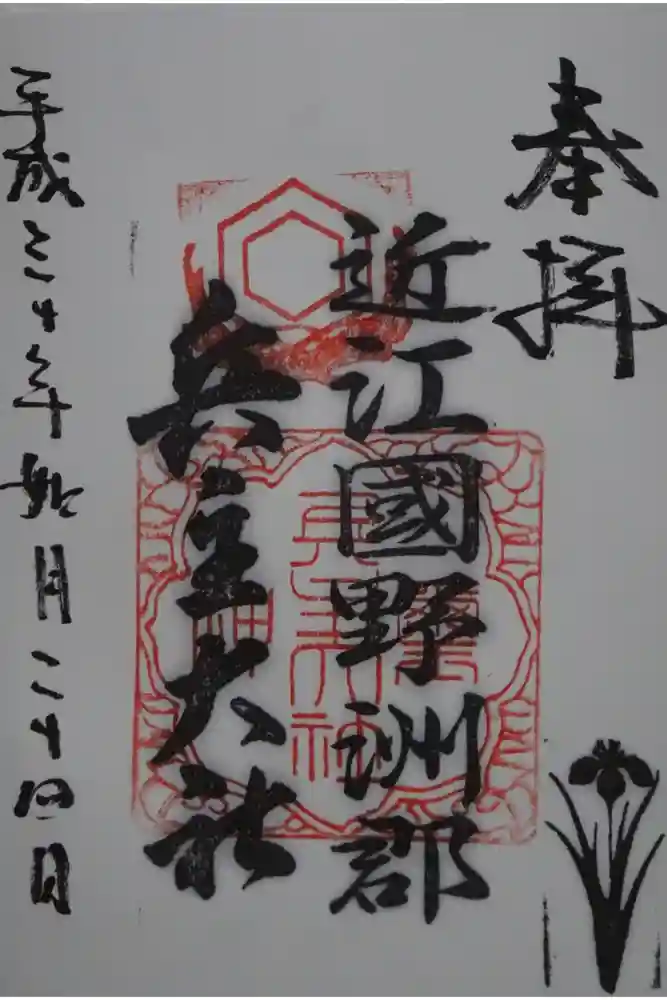 奉拝
近江國野洲郡
兵主大社
平成三十年 月二十四日